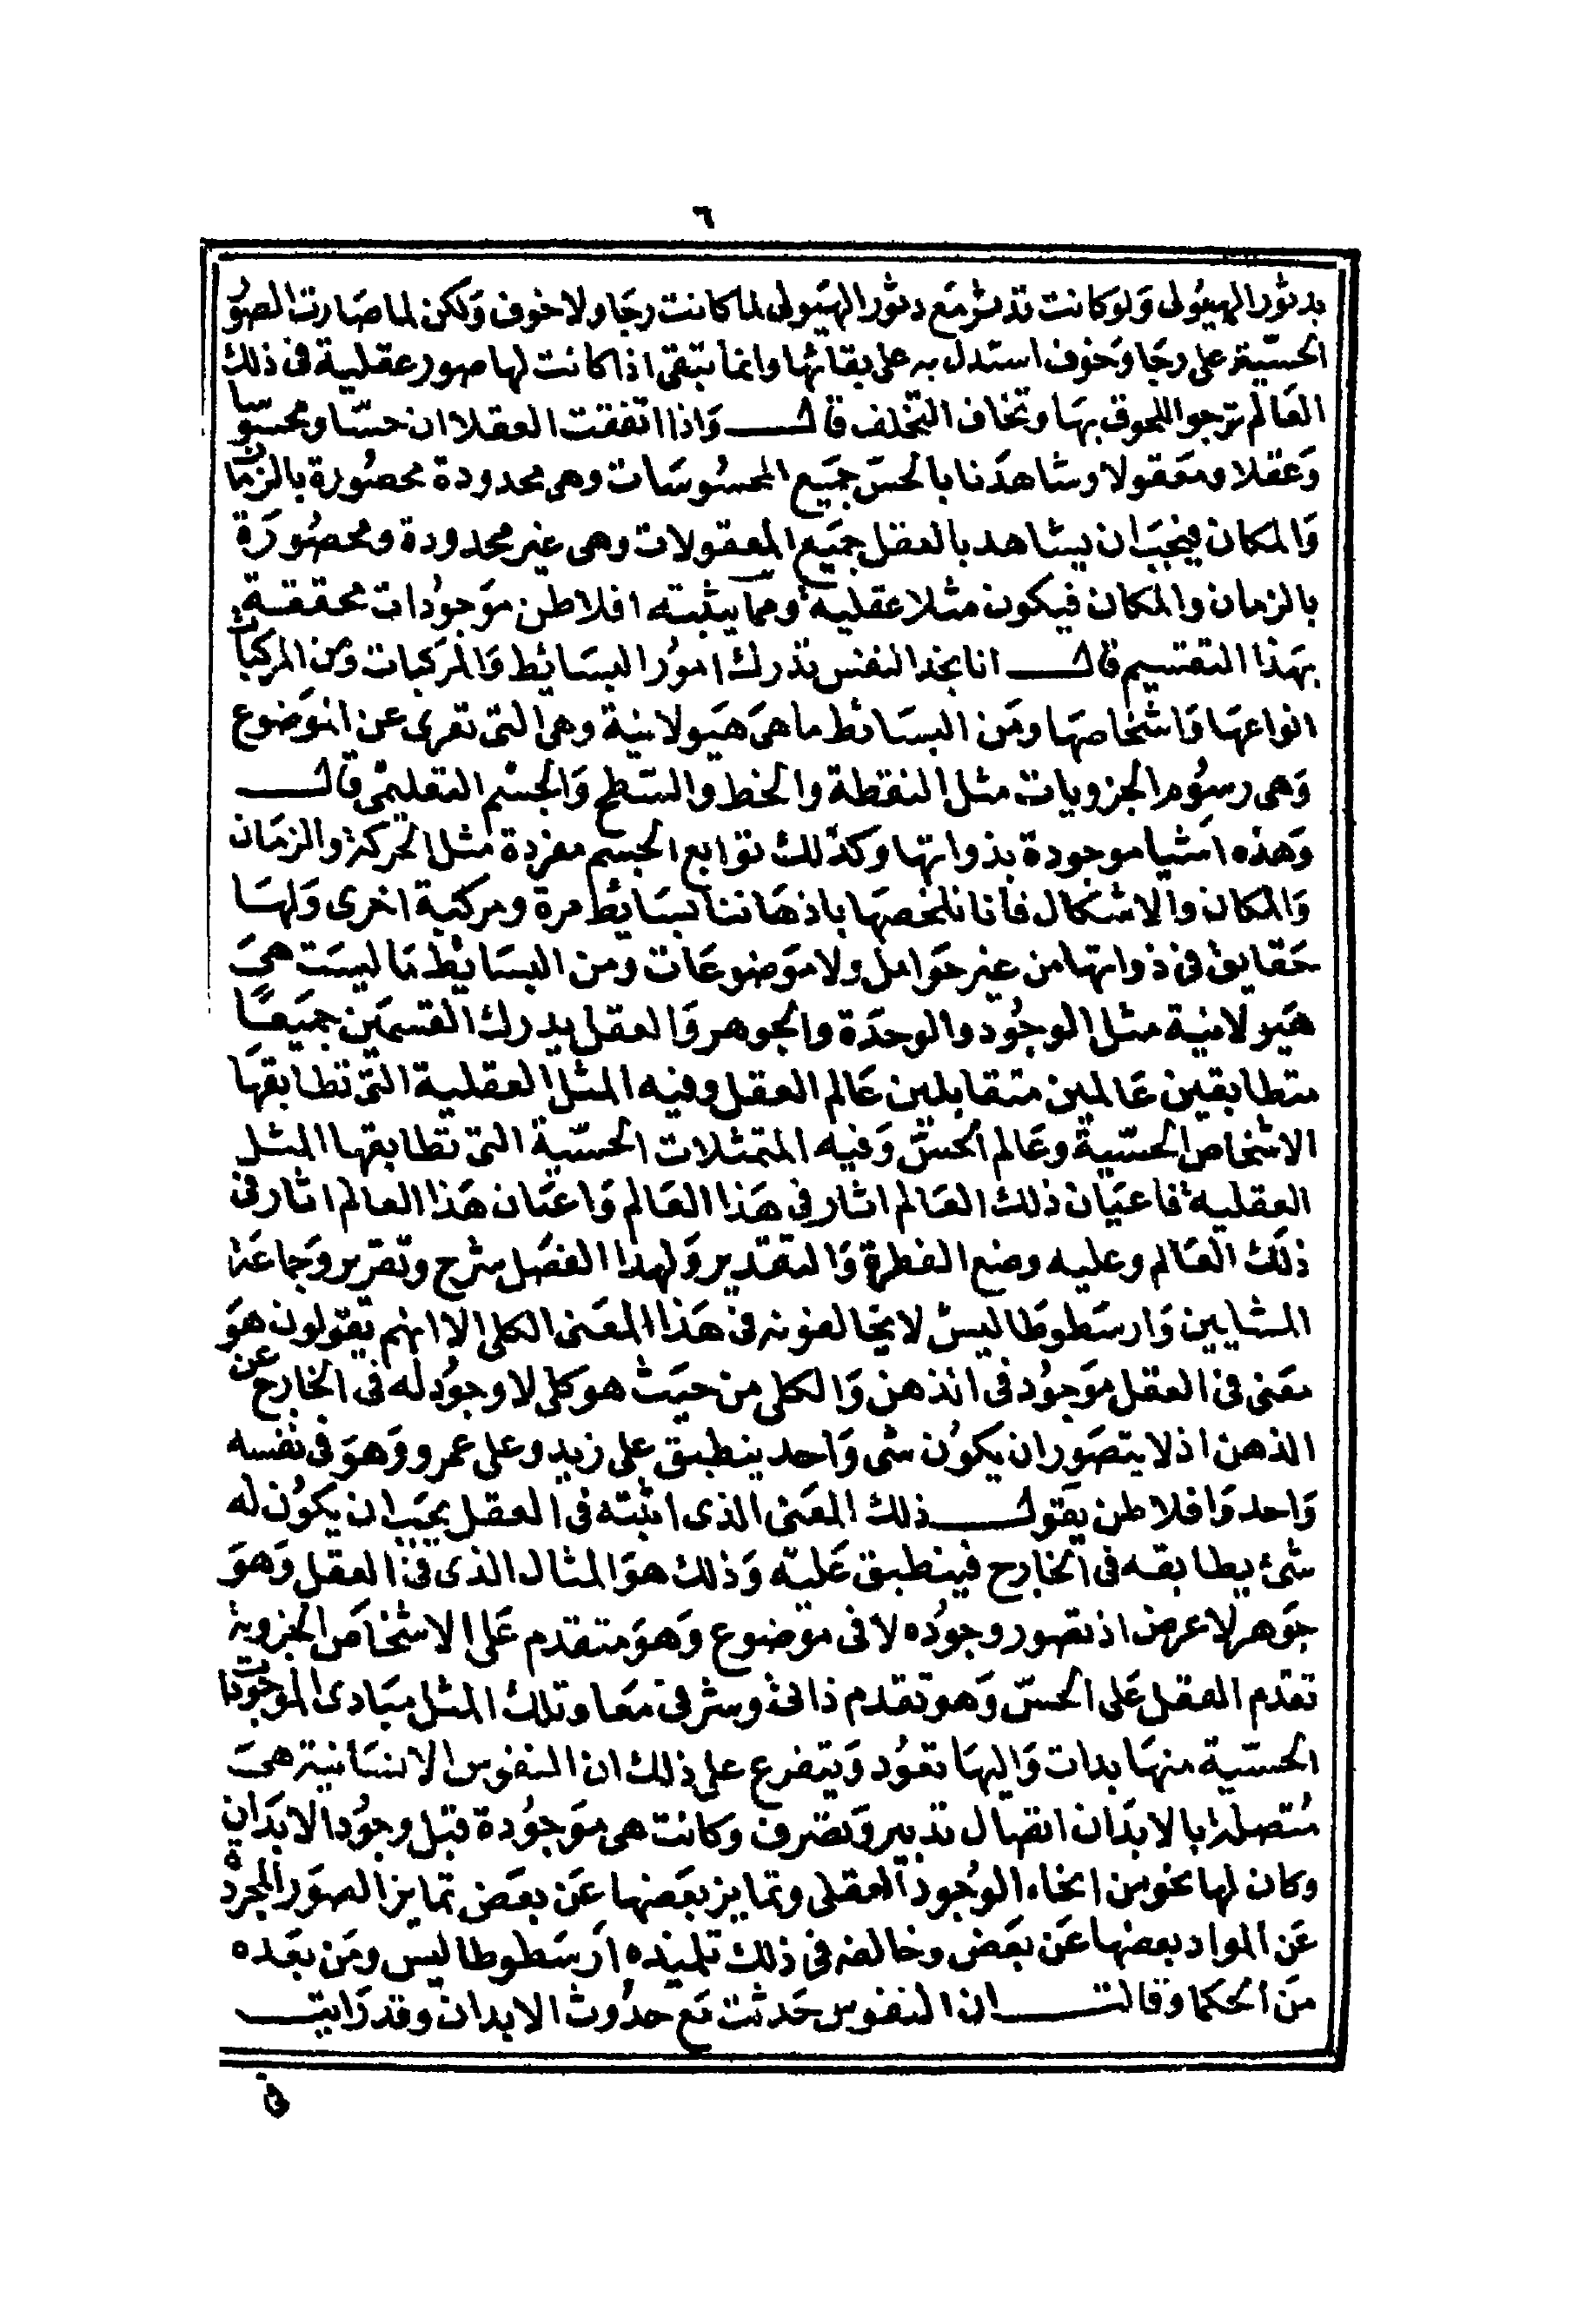 ٦
بدثور الهيولى ولو كانت تدثر مع دثور الهيولى لما كانت رجا ولا خوف ولكن لما صارت الصور
الحسية على رجا وخوف استدل به على بقائها وانما تبقى اذا كانت لها صور عقلية فى ذلك
العالم ترجوا اللحوق بها وتخاف التخلف قال واذا اتفقت العقلا ان حسا ومحسوسا
وعقلا ومعقولا وشاهدنا بالحس جميع المحسوسات وهى محدودة محصورة بالزمان
والمكان فيجب ان يشاهد بالعقل جميع المعقولات وهى غير محدودة ومحصورة
بالزمان والمكان فيكون مثلا عقلية ومما يثبته افلاطن موجودات محققة
بهذا التقسيم قال انا نجد النفس تدرك امور البسائط والمركبات ومن المركبات
انواعها واشخاصها ومن البسائط ما هى هيولانية وهى التى تعرى عن الموضوع
وهى رسوم الجزويات مثل النقطة والخط والسطح والجسم التعليمى قال
وهذه اشيا موجودة بذواتها وكذلك توابع الجسم مفردة مثل الحركة والزمان
والمكان والاشكال فانا نلخصها باذهاننا بسايط مرة ومركبة اخرى ولها
حقايق فى ذواتها من غير حوامل ولا موضوعات ومن البسائط ما ليست هى
هيولانية مثل الوجود والوحدة والجوهر والعقل يدرك القسمين جميعا
متطابقين عالمين متقابلين عالم العقل وفيه المثل العقلية التى تطابقها
الاشخاص الحسية وعالم الحس وفيه المتمثلات الحسية التى تطابقها المثل
العقلية فاعيان ذلك العالم اثار فى هذا العالم واعيان هذا العالم اثار فى
ذلك العالم وعليه وضع الفطرة والتقدير ولهذا الفصل شرح وتقرير وجماعة
المشايين وارسطوطاليس لا يخالفونه فى هذا المعنى الكلى الا انهم يقولون هو
معنى فى العقل موجود فى الذهن والكلى من حيث هو كلى لا وجود له فى الخارج عن
الذهن اذ لا يتصور ان يكون شى واحد ينطبق على زيد وعلى عمرو وهو فى نفسه
واحد وافلاطن يقول ذلك المعنى الذى اثبته فى العقل يجب ان يكون له
شئ يطابقه فى الخارج فينطبق عليه وذلك هو المثال الذى فى العقل وهو
جوهر لا عرض اذ تصور وجوده لا فى موضوع وهو متقدم على الاشخاص الجزوية
تقدم العقل على الحس وهو تقدم ذاتى وشرفى معا وتلك المثل مبادى الموجودات
الحسية منها بدات واليها تعود ويتفرع على ذلك ان النفوس الانسانية هى
متصلة بالابدان اتصال تدبير وتصرف وكانت هى موجودة قبل وجود الابدان
وكان لها نحو من انحاء الوجود العقلى وتمايز بعضها عن بعض تمايز الصور المجردة
عن المواد بعضها عن بعض وخالفه فى ذلك تلميذه ارسطوطاليس ومن بعده
من الحكما وقالت ان النفوس حدثت مع حدوث الابدان وقد رايت